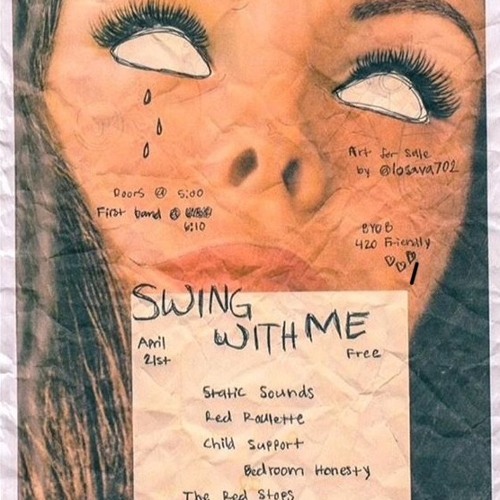 Art for sale
by @losava702
Doors @ 5:00
First band @
6:10
BYOB
420 Friendly
SWING
WITH ME
April
21st
Free
Static Sounds
Red Roulette
Child Support
Bedroom Honesty
The Red Stops